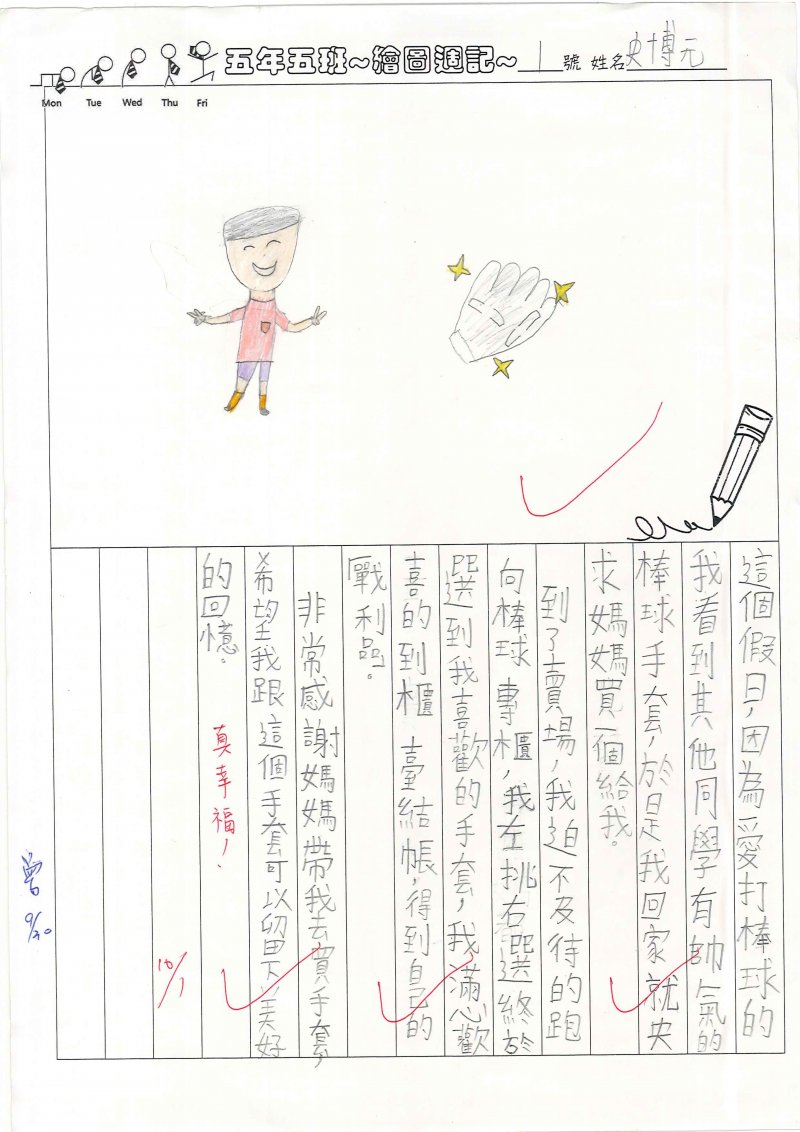 五年五班~繪圖週記~ 1 號 姓名 史博元
Mon Tue Wed Thu Fri
這個假日，因為愛打棒球的
我看到其他同學有帥氣的
棒球手套，於是我回家就央
求媽媽買一個給我。
到了賣場，我迫不及待的跑
向棒球專櫃，我左挑右選終於
選到我喜歡的手套，我滿心歡
喜的到櫃臺結帳，得到自己的
戰利品。
非常感謝媽媽帶我去買手套，
希望我跟這個手套可以留下美好
的回憶。
真幸福！
10/1
曾
9/30